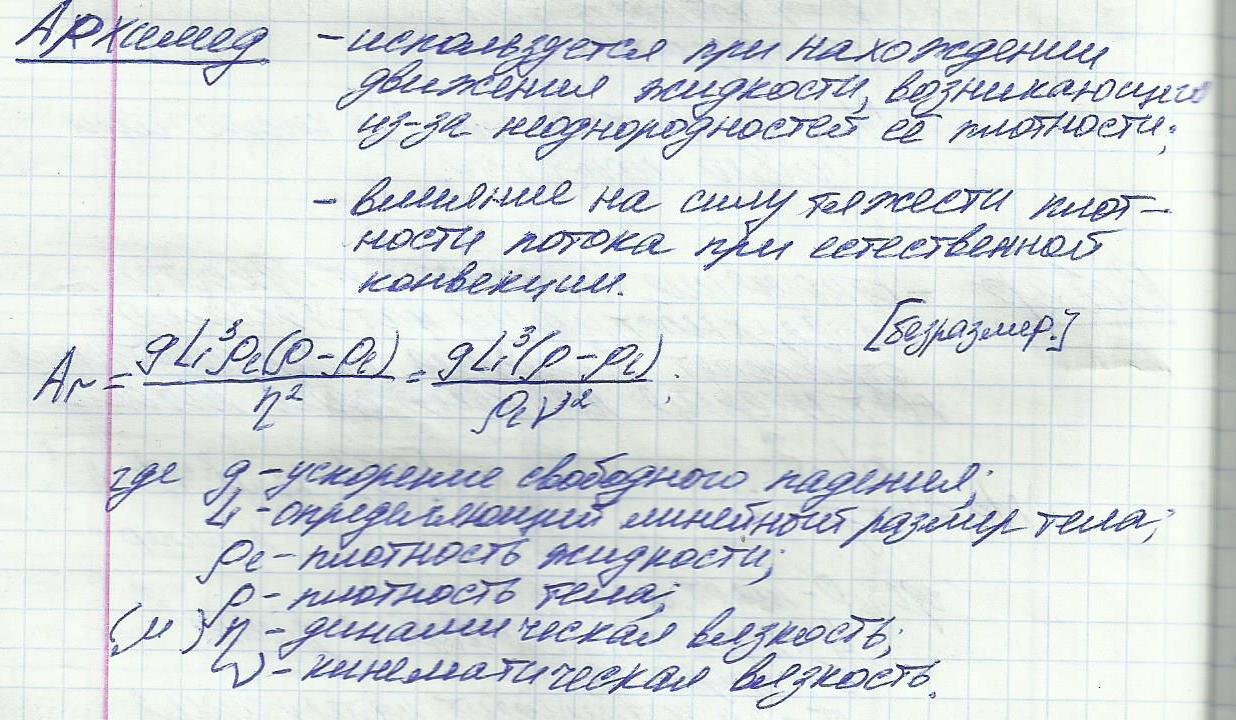 Архимед - используется при нахождении
движения жидкости, возникающего
из-за неоднородностей её плотности;
- влияние на силу тяжести плот-
ности потока при естественной
конвекции.
[безразмер.]
Ar = gL₁³ρₑ(ρ-ρₑ)/η² = gL₁³(ρ-ρₑ)/ρₑν² ;
где g - ускорение свободного падения;
L - определяющий линейный размер тела;
ρₑ - плотность жидкости;
ρ - плотность тела;
(μ) η - динамическая вязкость;
ν - кинематическая вязкость.